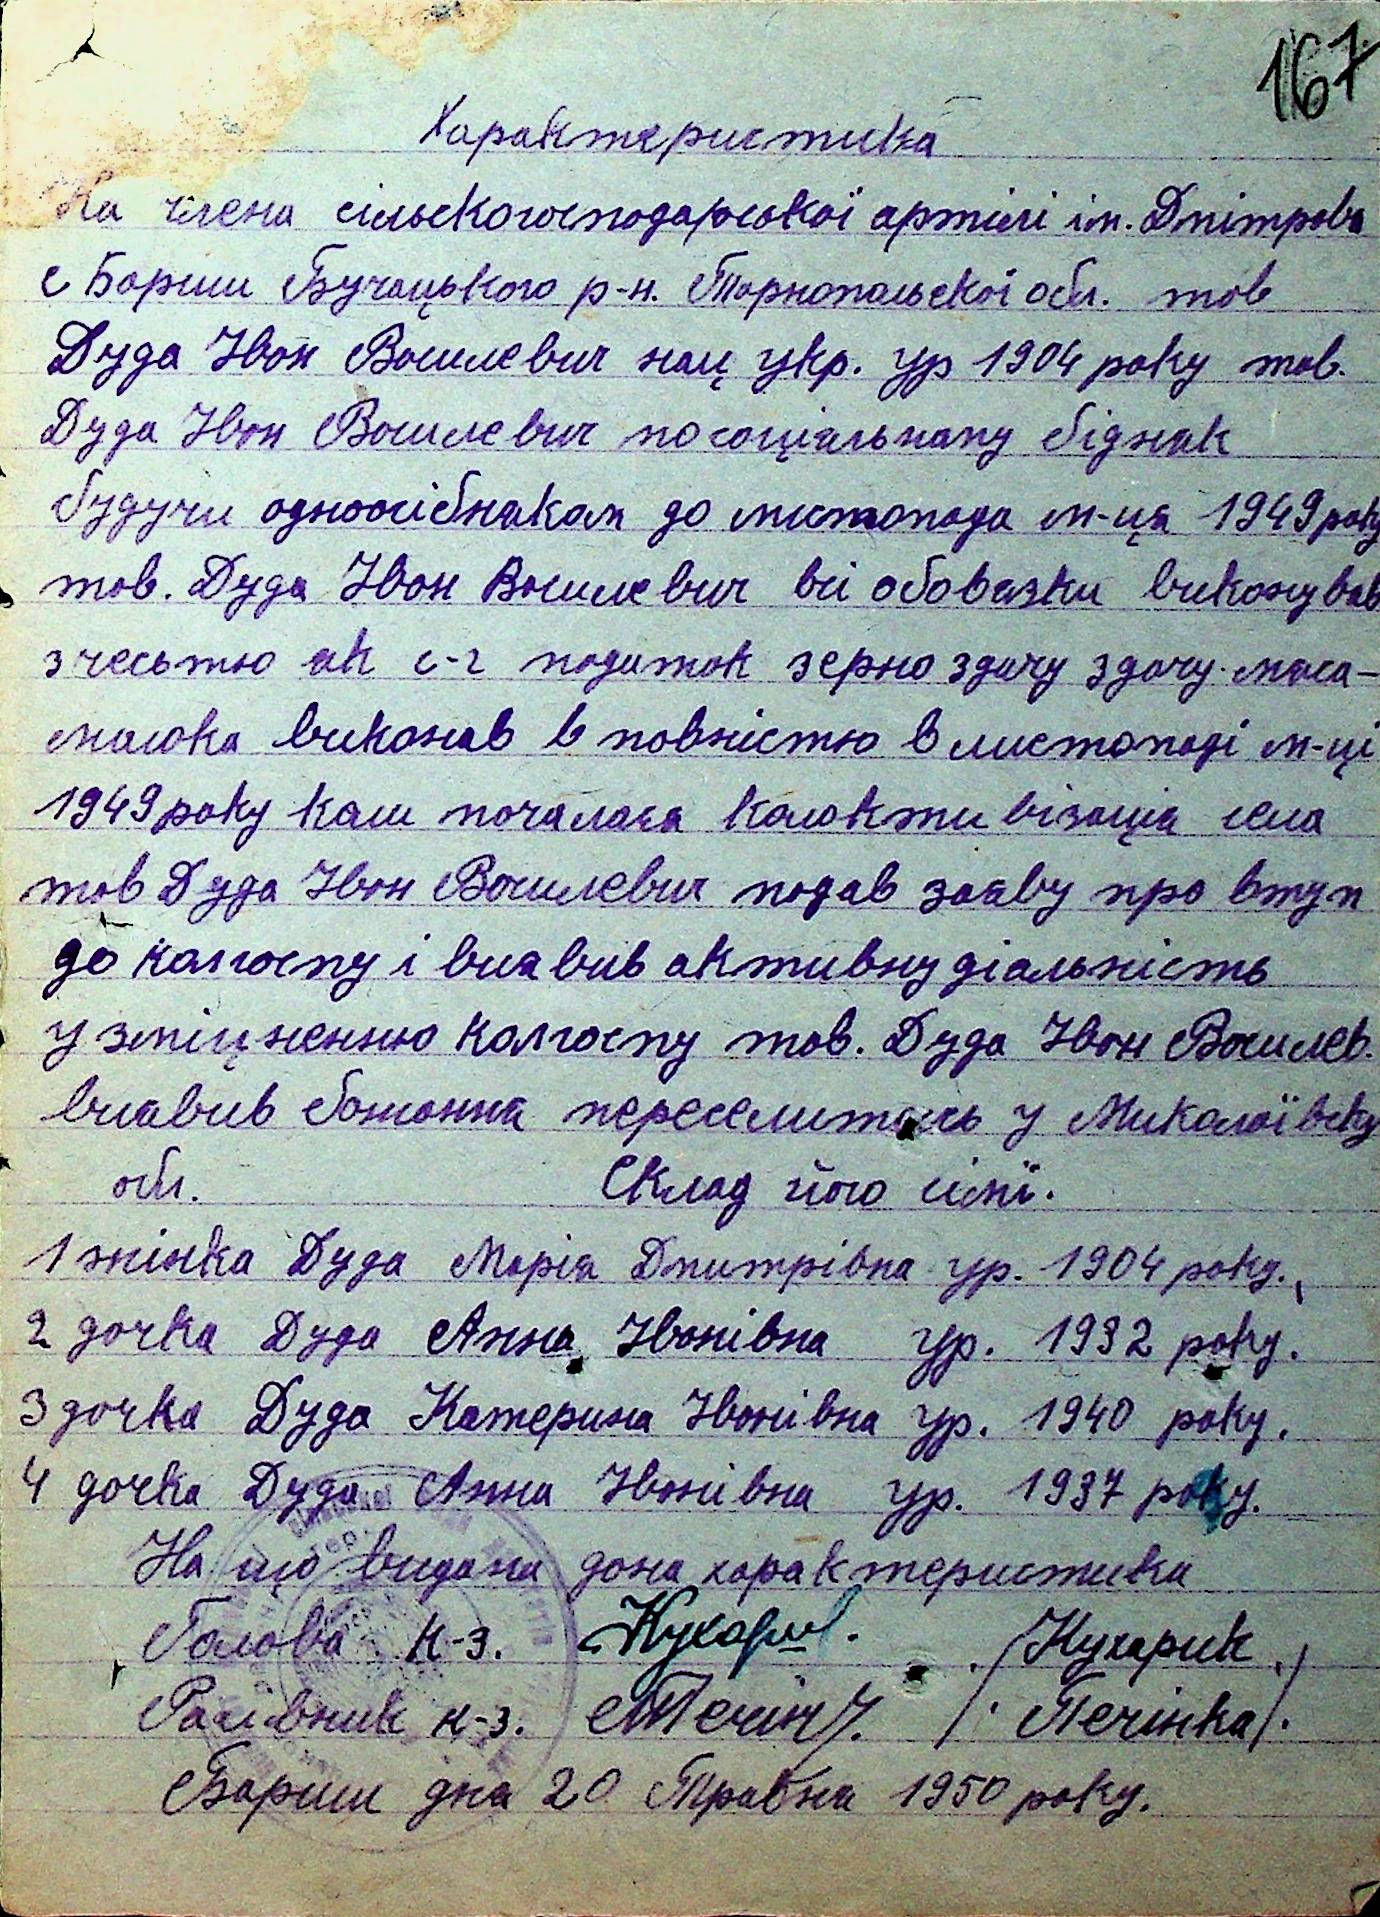 167
Характеристика
На члена сільскогосподарської артілі ім. Дмітрова
с Бариш Бучацького р-н. Тарнопольскої обл. тов
Дуда Іван Василевич нац укр. ур 1904 року тов.
Дуда Іван Василевич посоціальному бідняк
будучи одноосібнаком до листопада м-ця 1949 року
тов. Дуда Іван Василевич всі обовязки виконував
з чесьтю як с-г податок зерно здачу здачу мяса-
молока виконав в повністю в листопаді м-ці
1949 року коли почалася колоктивізація села
тов Дуда Іван Василевич подав заяву про втуп
до колгоспу і виявив активну діяльність
у зміцненню колгоспу тов. Дуда Іван Василев.
виявив бажання переселитись у Миколаївску
обл. Склад його сімї.
1 жінка Дуда Марія Дмитрівна ур. 1904 року.
2 дочка Дуда Анна Іванівна ур. 1932 року.
3 дочка Дуда Катерина Іванівна ур. 1940 року.
4 дочка Дуда Анна Іванівна ур. 1937 року.
На що видана дана характеристика
Голова к-з. /Кухарик/
Рахівник к-з. /Печінка/.
Бариш дня 20 Травня 1950 року.